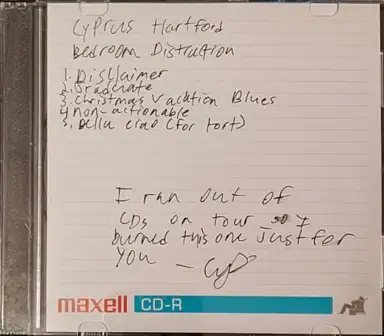 Cyprus Hartford
Bedroom Distraction
1. Disclaimer
2. Graduate
3. Christmas Vacation Blues
4. non-actionable
5. Bella ciao (for tort)
I ran out of
CDs on tour so I
burned this one just for
you — Cyp
maxell CD-R